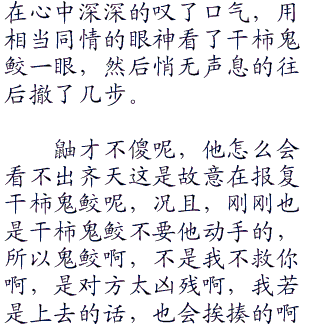 在心中深深的叹了口气，用
相当同情的眼神看了干柿鬼
鲛一眼，然后悄无声息的往
后撤了几步。
鼬才不傻呢，他怎么会
看不出齐天这是故意在报复
干柿鬼鲛呢，况且，刚刚也
是干柿鬼鲛不要他动手的，
所以鬼鲛啊，不是我不救你
啊，是对方太凶残啊，我若
是上去的话，也会挨揍的啊